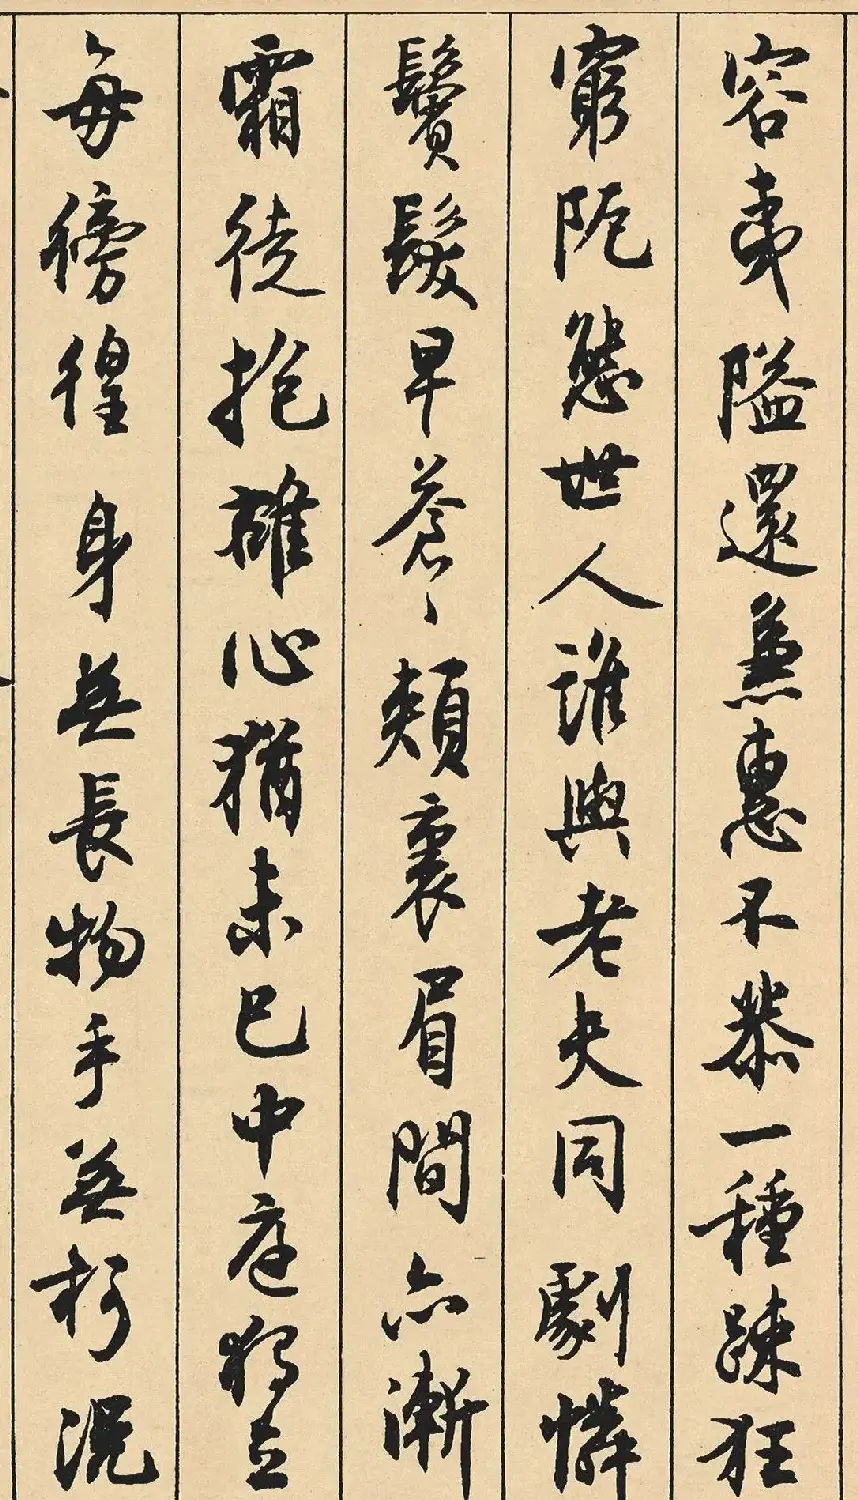 容夷隘還兼惠不恭一種踈狂
窮阨態世人誰與老夫同劇憐
鬢髮早蒼〻頰裏眉間亦漸
霜徒抱雄心猶未已中庭獨立
每徬徨身無長物手無柯況